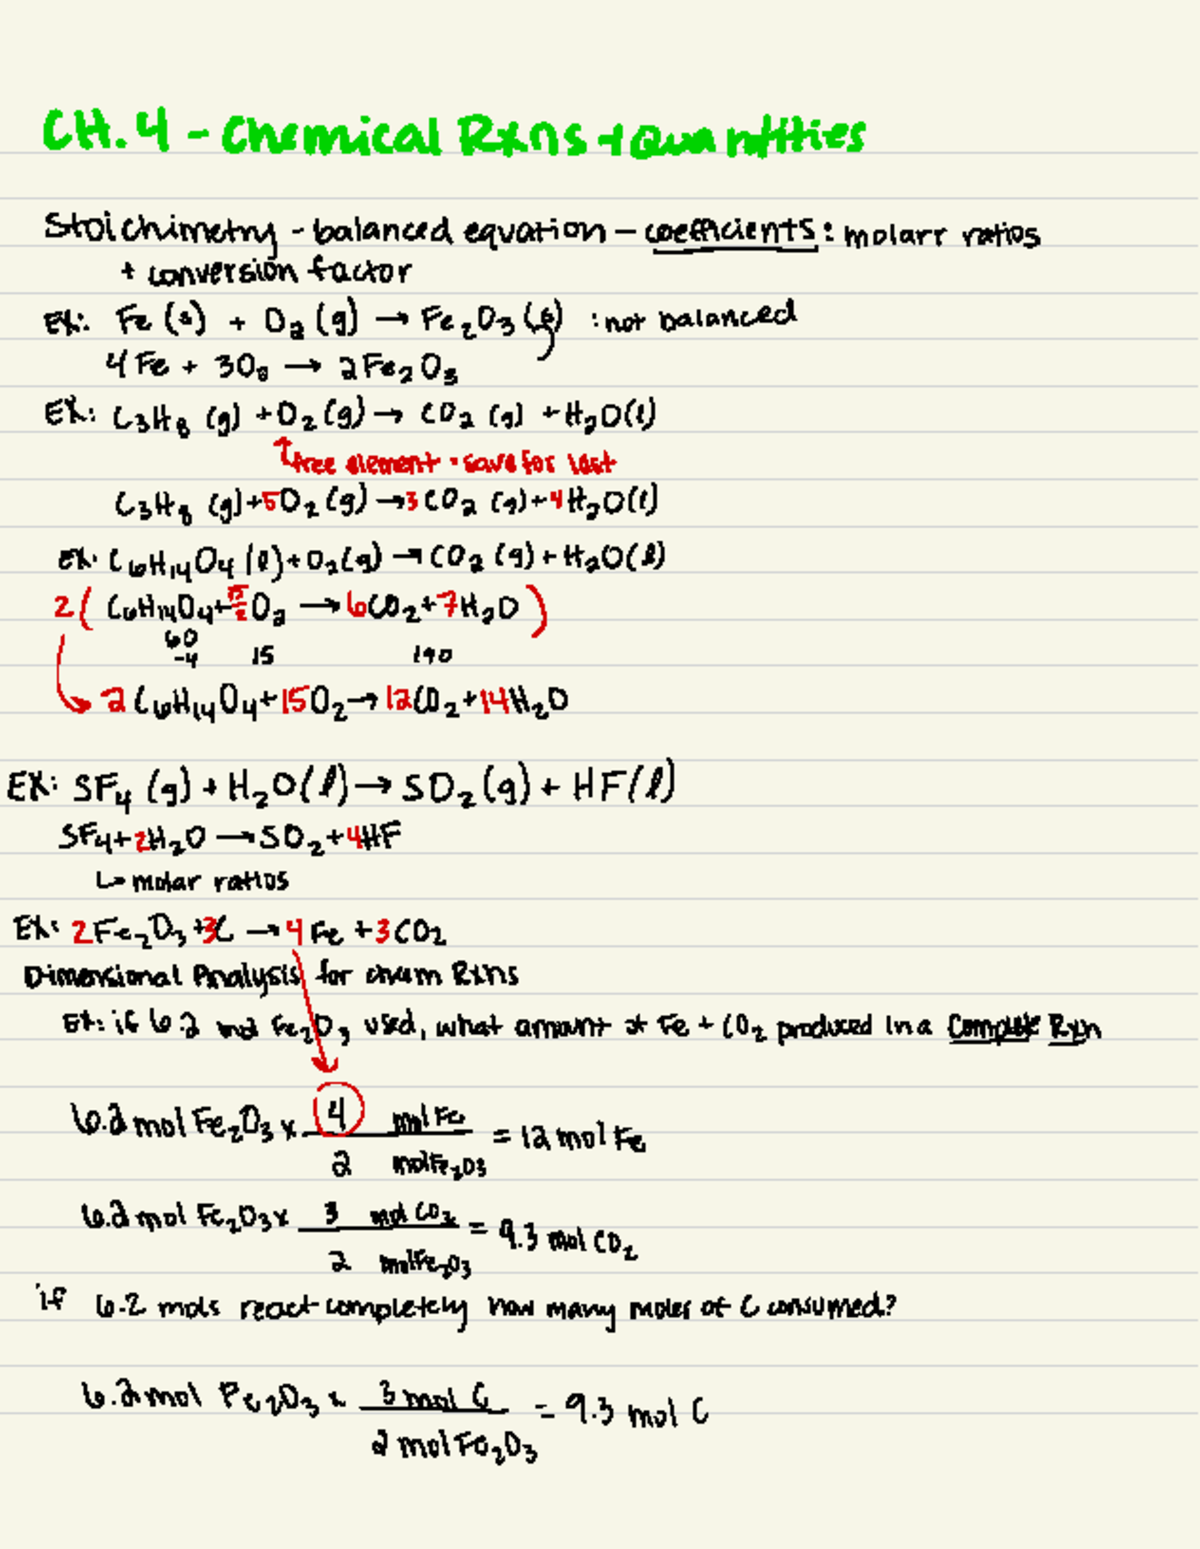 CH.4 - Chemical Rxns + Quantities
Stoichimetry - balanced equation - coefficients: molarr ratios
+ conversion factor
EX: Fe (s) + O₂ (g) → Fe₂O₃ (s) : not balanced
4Fe + 3O₂ → 2Fe₂O₃
EX: C₃H₈ (g) + O₂ (g) → CO₂ (g) + H₂O(l)
↑ free element · save for last
C₃H₈ (g) + 5O₂ (g) → 3CO₂ (g) + 4H₂O(l)
EX: C₆H₁₄O₄ (l) + O₂ (g) → CO₂ (g) + H₂O(l)
2( C₆H₁₄O₄ + 15/2 O₂ → 6CO₂ + 7H₂O )
60
-4 15 190
2C₆H₁₄O₄ + 15O₂ → 12CO₂ + 14H₂O
EX: SF₄ (g) + H₂O(l) → SO₂ (g) + HF(l)
SF₄ + 2H₂O → SO₂ + 4HF
↳ molar ratios
EX: 2Fe₂O₃ + 3C → 4Fe + 3CO₂
Dimensional Analysis for chem Rxns
EX: if 6.2 mol Fe₂O₃ used, what amount of Fe + CO₂ produced in a Complete Rxn
6.2 mol Fe₂O₃ x 4 mol Fe = 12 mol Fe
2 mol Fe₂O₃
6.2 mol Fe₂O₃ x 3 mol CO₂ = 9.3 mol CO₂
2 mol Fe₂O₃
if 6.2 mols react completely how many moles of C consumed?
6.2 mol Fe₂O₃ x 3 mol C = 9.3 mol C
2 mol Fe₂O₃